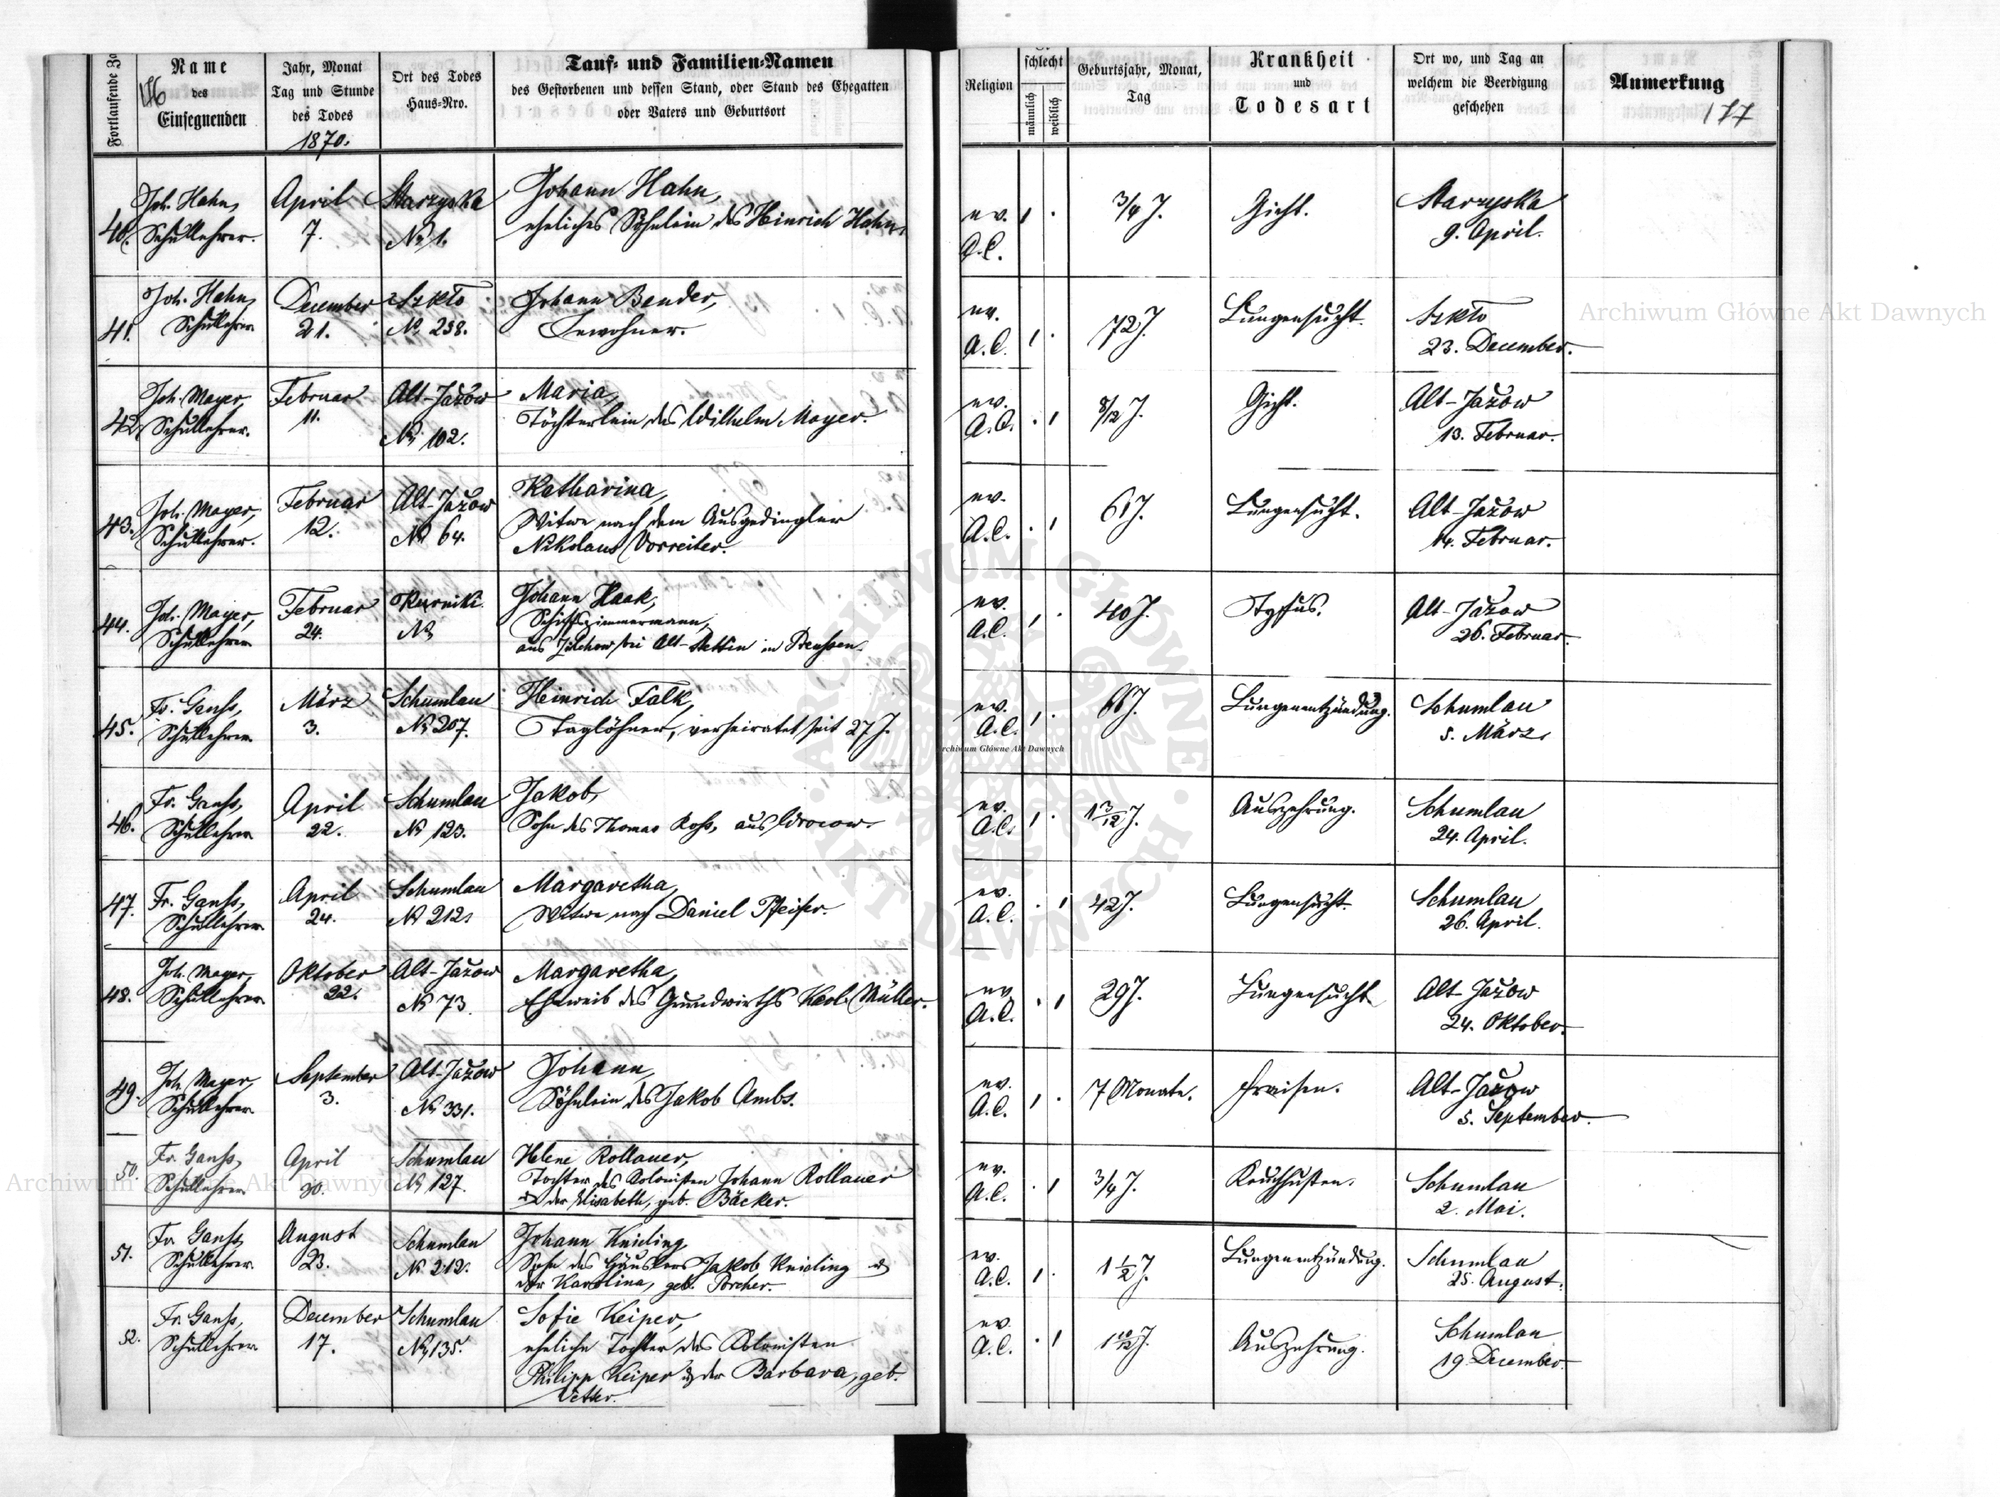 Fortlaufende Za
Name
des
Einsegnenden
176
Jahr, Monat
Tag und Stunde
des Todes
1870.
Ort des Todes
Haus-Nro.
Tauf- und Familien-Namen
des Gestorbenen und dessen Stand, oder Stand des Ehegatten
oder Vaters und Geburtsort
Religion
schlecht
männlich
weiblich
Geburtsjahr, Monat,
Tag
Krankheit
und
Todesart
Ort wo, und Tag an
welchem die Beerdigung
geschehen
Anmerkung
177
40.
Joh. Hahn,
Schullehrer.
April
7.
Starzyska
№ 1.
Johann Hahn,
eheliches Söhnlein des Heinrich Hahn.
ev.
A.C.
1 .
3/4 J.
Gicht.
Starzyska
9. April.
41.
Joh. Hahn,
Schullehrer
December
21.
Szkło
№ 238.
Johann Bender,
Inwohner.
ev.
A.C.
1 .
72 J.
Lungensucht.
Szkło
23. December.
42.
Joh. Mayer,
Schullehrer.
Februar
11.
Alt-Jażow
№ 102.
Maria,
Töchterlein des Wilhelm Mayer.
ev.
A.C.
. 1
8/12 J.
Gicht.
Alt-Jażow
13. Februar.
43.
Joh. Mayer,
Schullehrer.
Februar
12.
Alt-Jażow
№ 64.
Katharina,
Witwe nach dem Ausgedingler
Nikolaus Vorreiter.
ev.
A.C.
. 1
61 J.
Lungensucht.
Alt-Jażow
14. Februar.
44.
Joh. Mayer,
Schullehrer
Februar
24.
Kurniki
№
Johann Haak,
Schiffszimmermann,
aus bei Alt-Stettin in Preußen.
ev.
A.C.
1 .
40 J.
Tyfus.
Alt-Jażow
26. Februar.
45.
Fr. Ganß,
Schullehrer
März
3.
Schumlau
№ 207.
Heinrich Falk,
Taglöhner, verheiratet seit 27 J.
ev.
A.C.
1 .
J.
Lungenentzündung.
Schumlau
5. März.
46.
Fr. Ganß,
Schullehrer
April
22.
Schumlau
№ 123.
Jakob,
Sohn des Thomas Roß, aus Wrocow.
ev.
A.C.
1 .
1 3/12 J.
Auszehrung.
Schumlau
24. April.
47.
Fr. Ganß,
Schullehrer.
April
24.
Schumlau
№ 212.
Margaretha,
Witwe nach Daniel Pfeifer.
ev.
A.C.
. 1
42 J.
Lungensucht.
Schumlau
26. April.
48.
Joh. Mayer,
Schullehrer.
Oktober
22.
Alt-Jażow
№ 73.
Margaretha,
Eheweib des Grundwirths Karl Müller.
ev.
A.C.
. 1
29 J.
Lungensucht
Alt-Jażow
24. Oktober.
49.
Joh. Mayer,
Schullehrer.
September
3.
Alt-Jażow
№ 331.
Johann,
Söhnlein des Jakob Ambs.
ev.
A.C.
1 .
7 Monate.
Fraisen.
Alt-Jażow
5. September.
50.
Fr. Ganß,
Schullehrer
April
30.
Schumlau
№ 127.
Helene Rollauer,
Tochter des Kolonisten Johann Rollauer
u. der Elisabeth, geb. Bäcker.
ev.
A.C.
. 1
3/4 J.
Keuchhusten.
Schumlau
2. Mai.
51.
Fr. Ganß,
Schullehrer.
August
23.
Schumlau
№ 212.
Johann Kniding
Sohn des Häuslers Jakob Kniding u.
der Karolina, geb. Porcher.
ev.
A.C.
1 .
1 1/2 J.
Lungenentzündung.
Schumlau
25. August.
52.
Fr. Ganß,
Schullehrer.
December
17.
Schumlau
№ 135.
Sofie Keiper,
eheliche Tochter des Kolonisten
Philipp Keiper u. der Barbara, geb.
Vetter.
ev.
A.C.
. 1
1 10/12 J.
Auszehrung.
Schumlau
19. December.
Archiwum Główne Akt Dawnych
Archiwum Główne Akt Dawnych
Archiwum Główne Akt Dawnych
ARCHIWUM GŁÓWNE AKT DAWNYCH